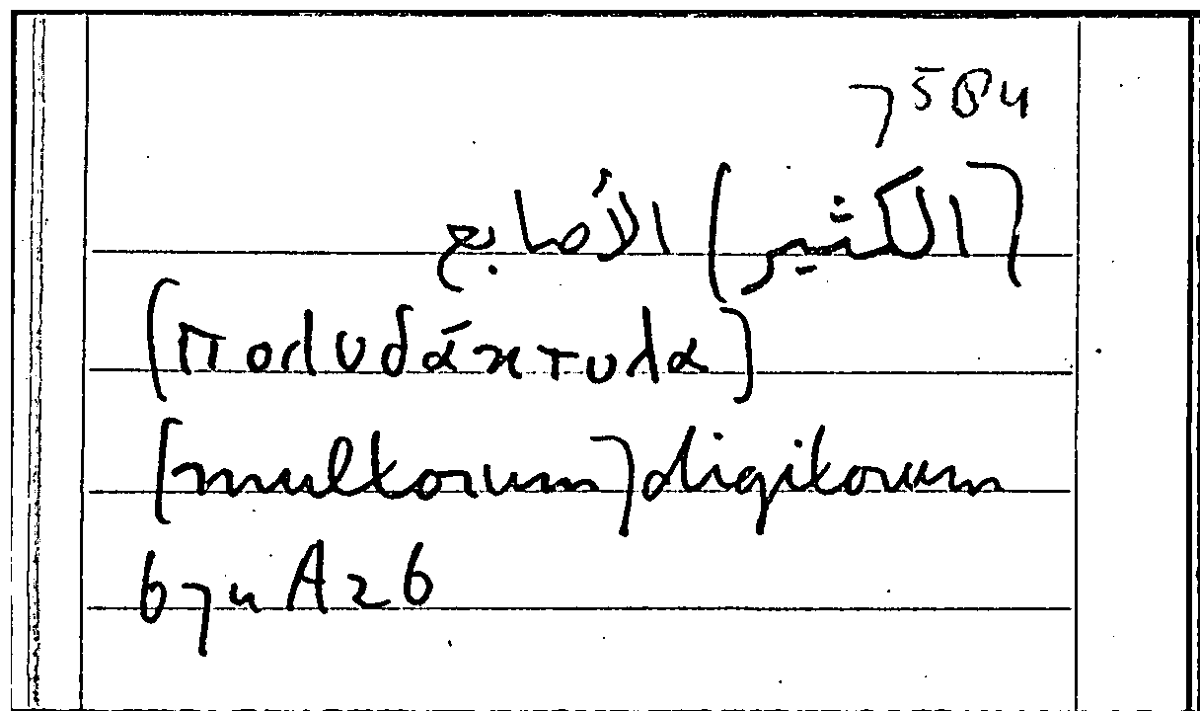 75B4
[الكثير] الأصابع
(πολυδάκτυλα)
[multorum] digitorum
674 A26